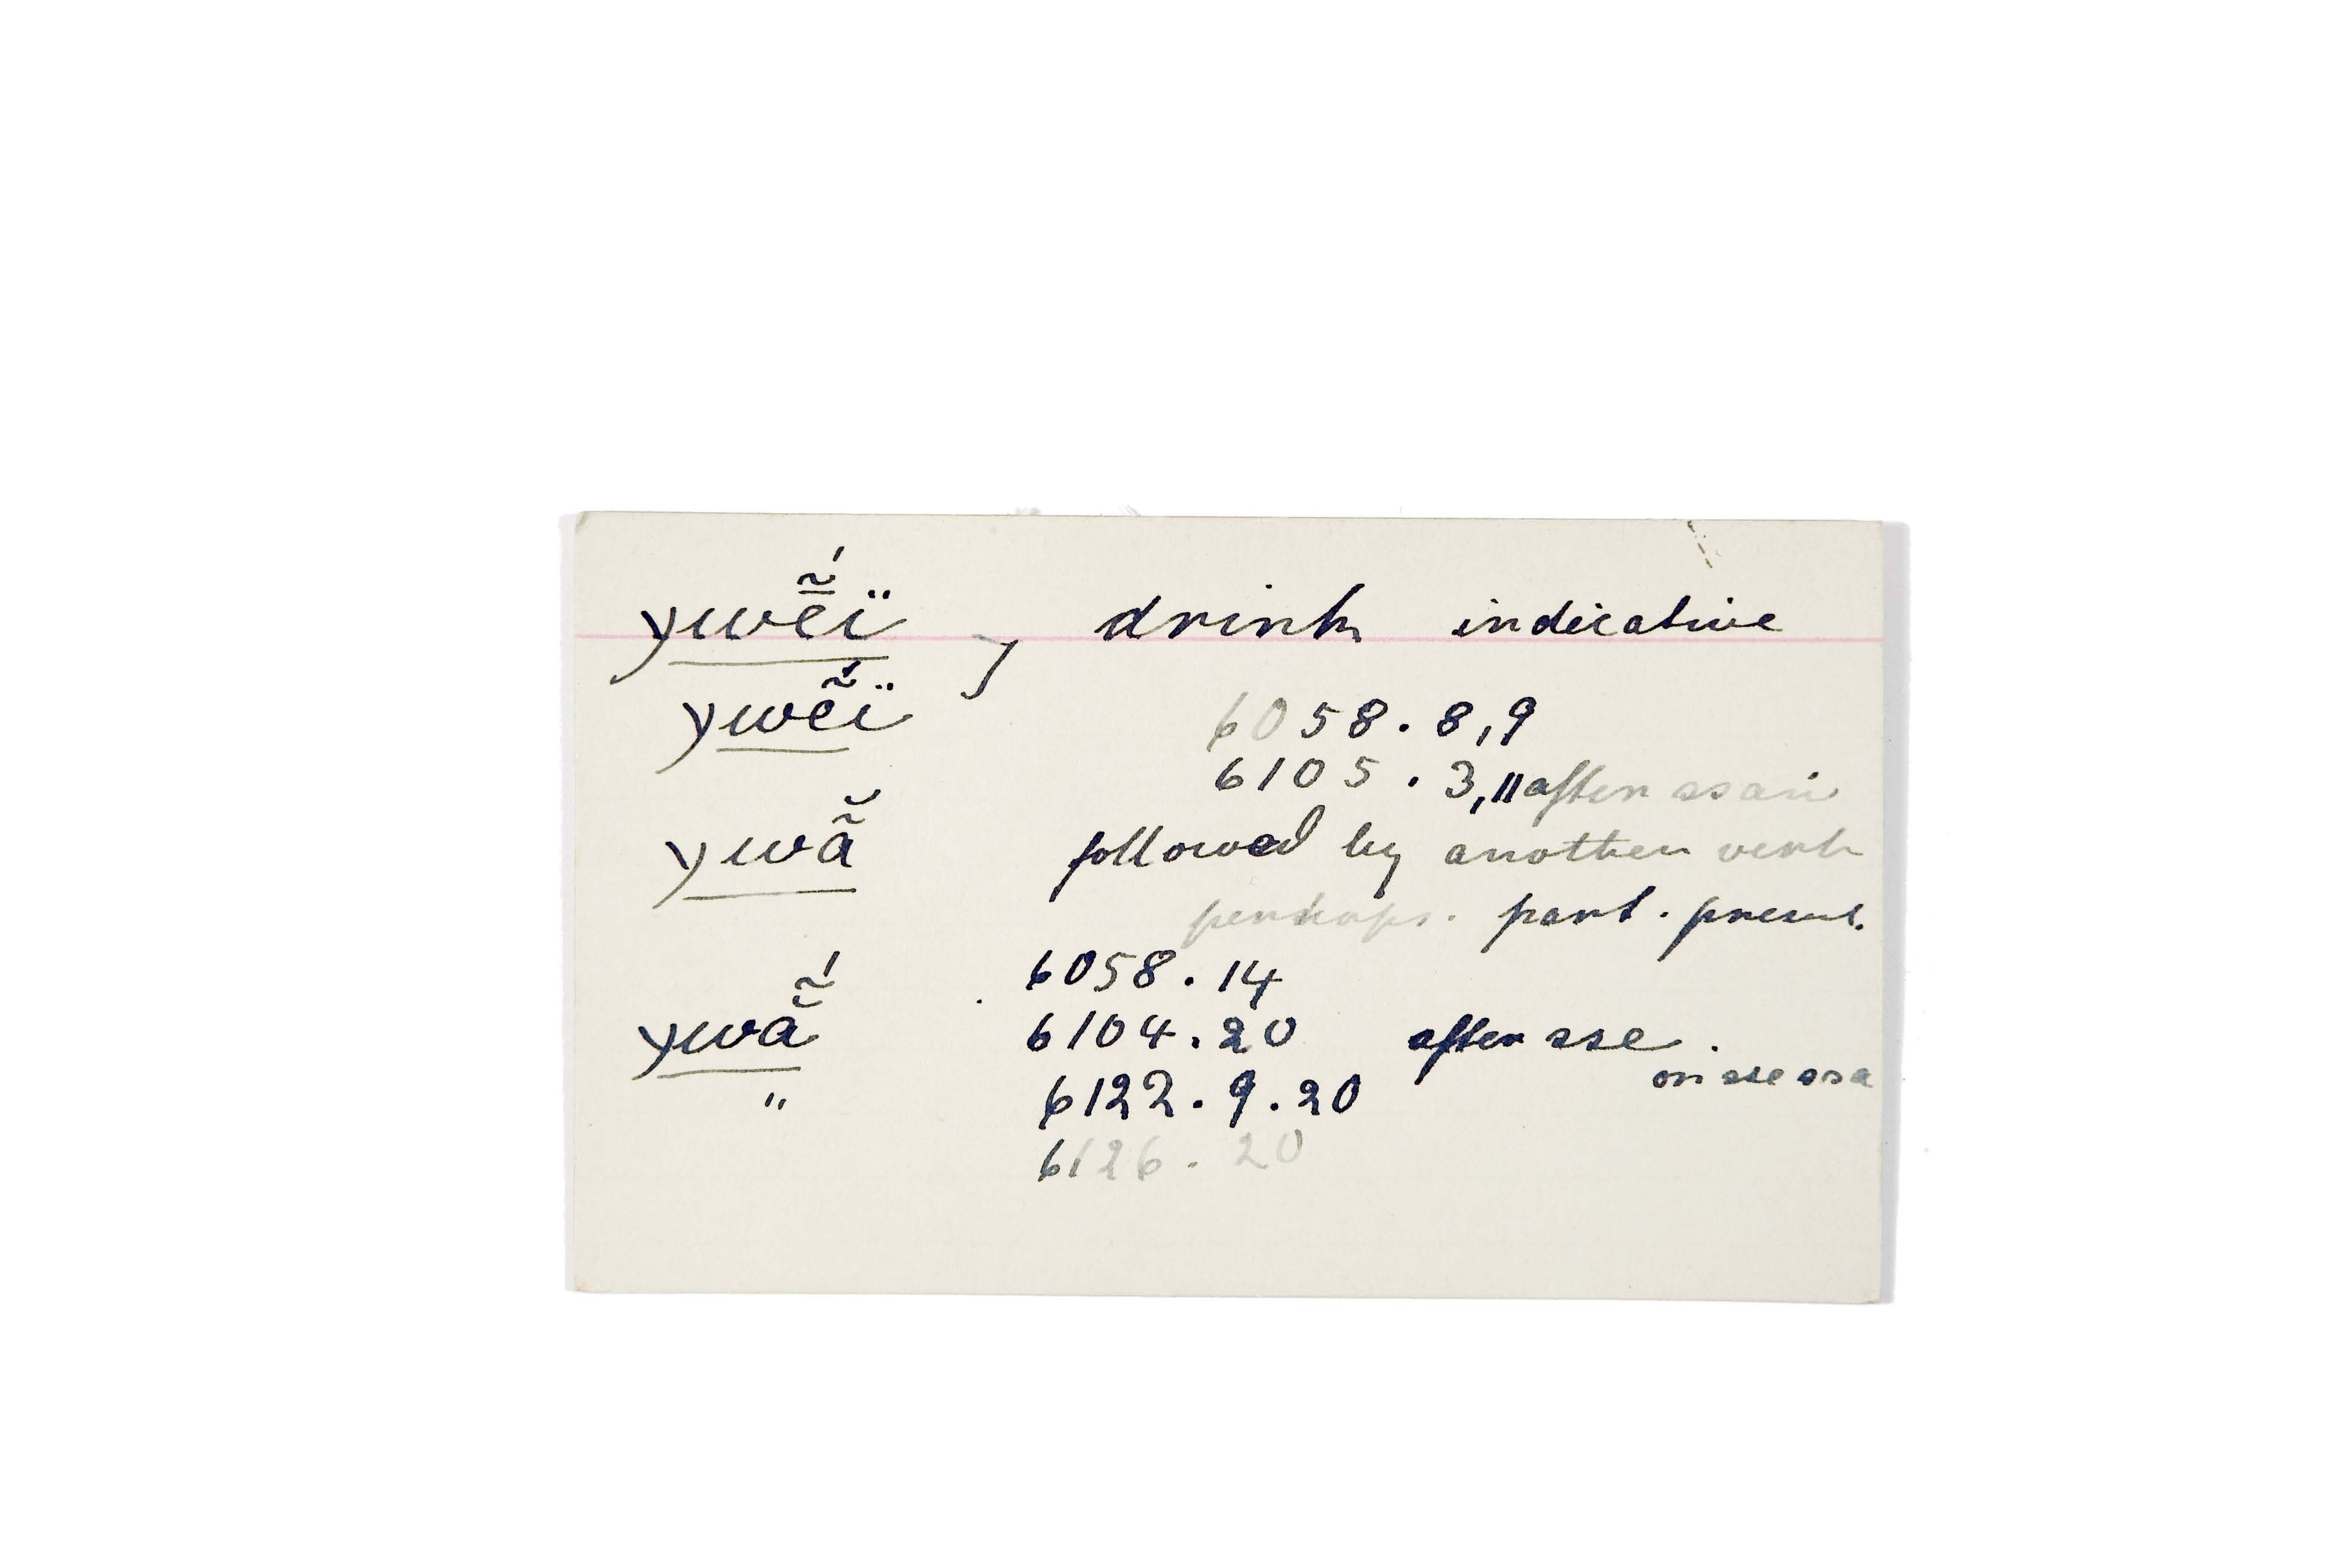 ywẽ̄́ï, drink indicative
ywẽ́ï 6058.8,9
6105.3,11 after ssari
ywã̆ followed by another verb
perhaps. part. presnt.
6058.14
ywã̃́ 6104.20 after sse.
or sse ssa
" 6122.9.20
6126.20